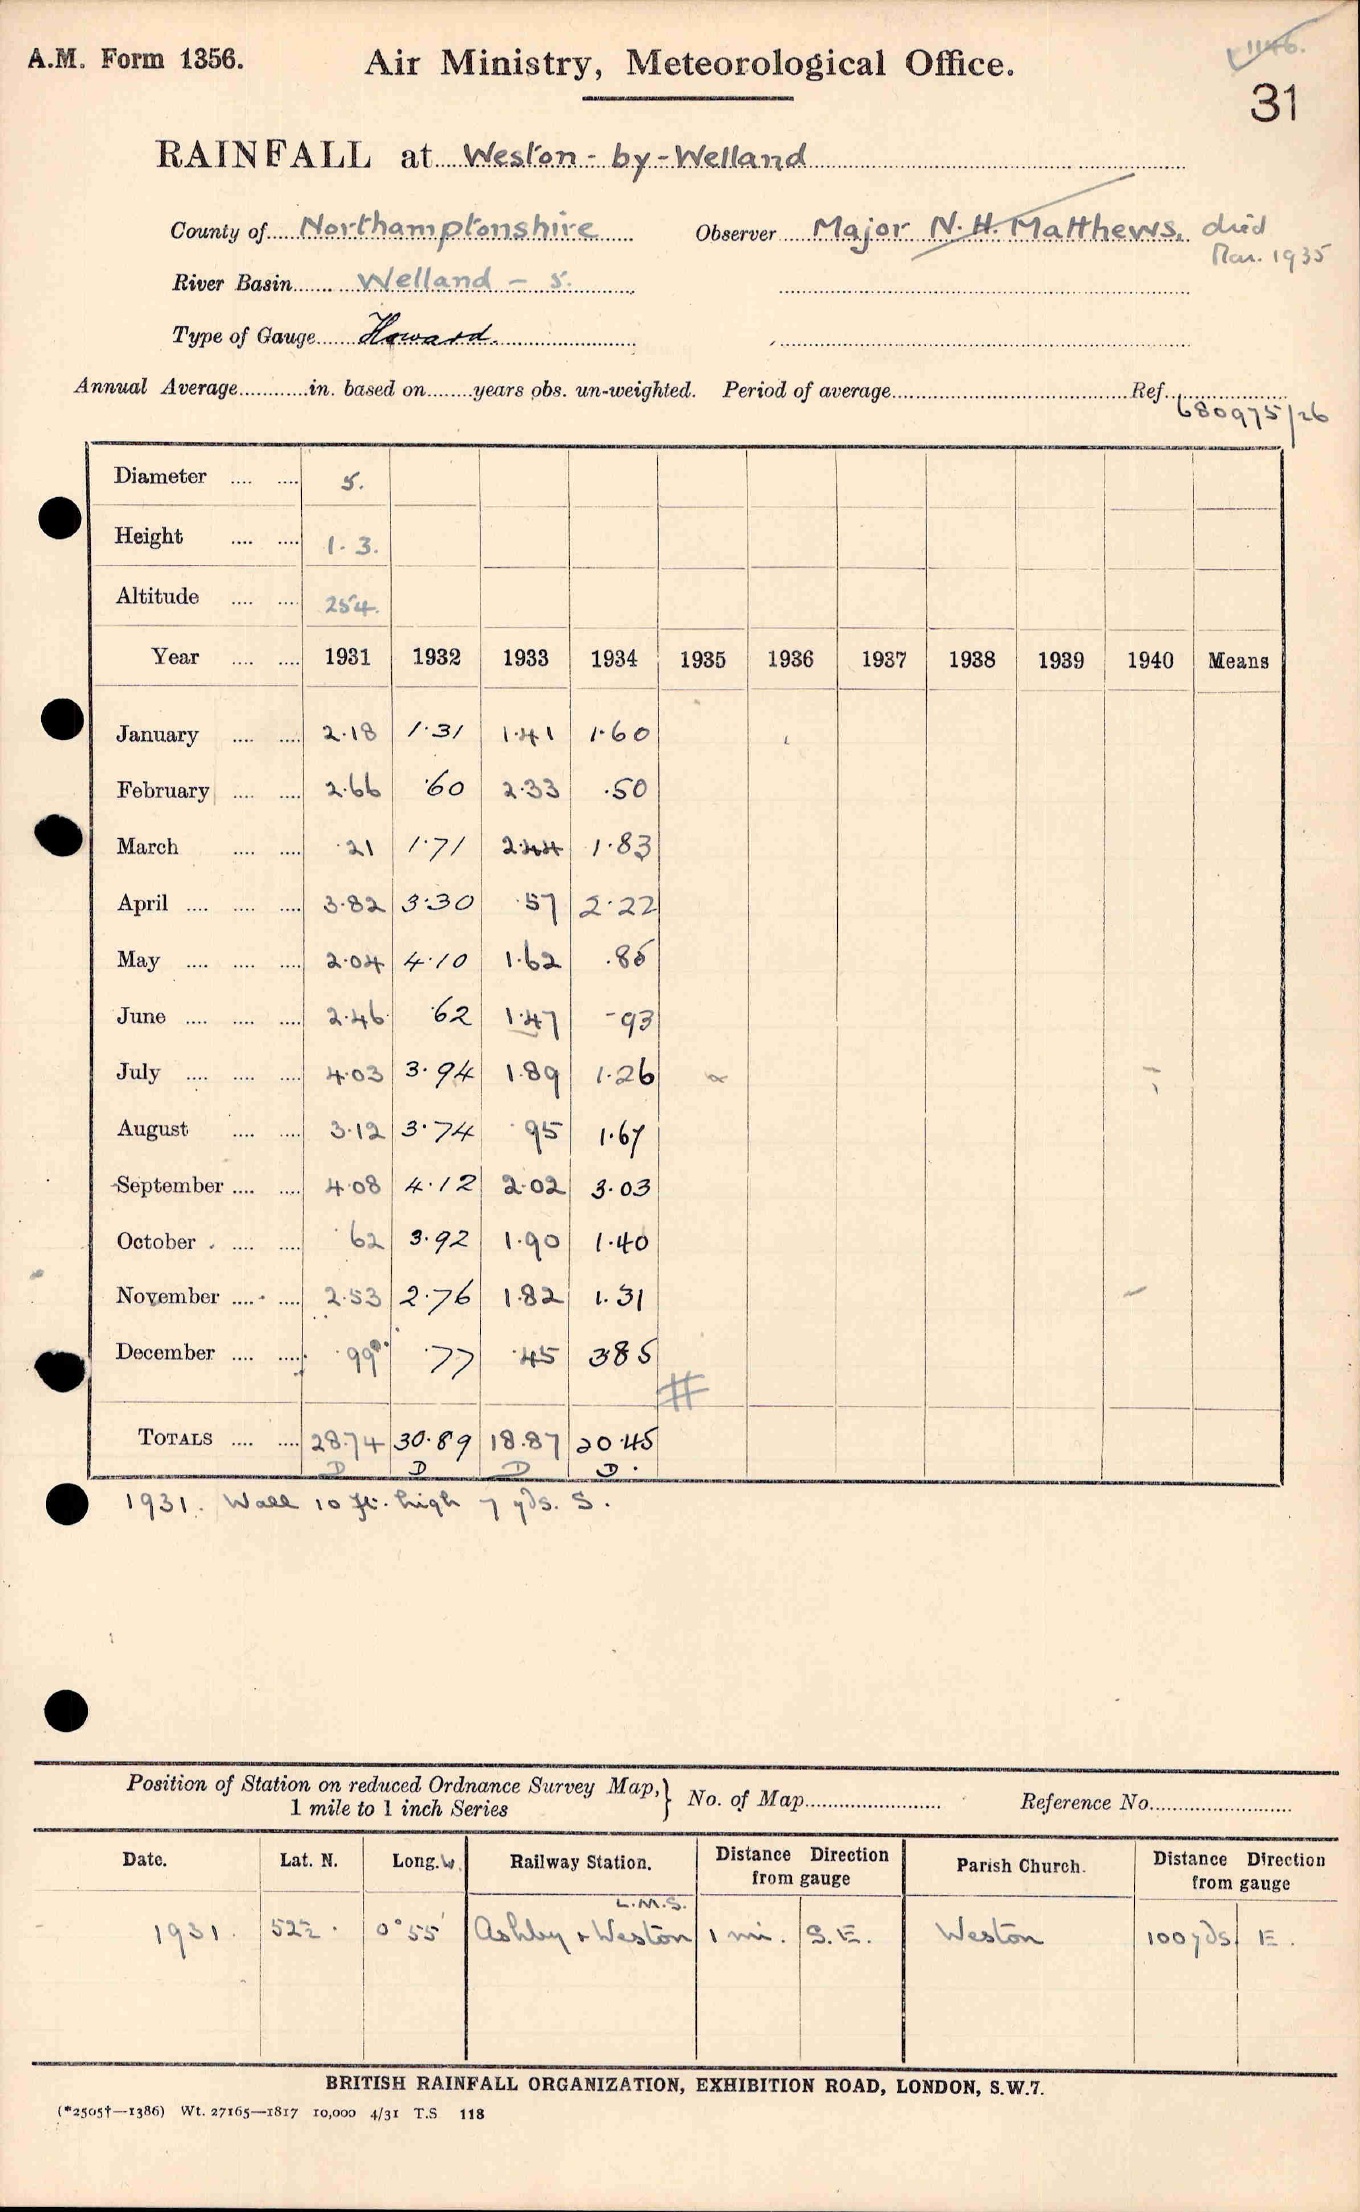 1146.
A.M. Form 1356. Air Ministry, Meteorological Office.
31
RAINFALL at Weston-by-Welland
County of Northamptonshire Observer Major N. H. Matthews. died
Mar. 1935
River Basin Welland - 5.
Type of Gauge Howard.
Annual Average............in. based on........years obs. un-weighted. Period of average.................... Ref.
680975/26
Diameter .... .... 5.
Height .... .... 1.3.
Altitude .... .... 254.
Year .... .... 1931 1932 1933 1934 1935 1936 1937 1938 1939 1940 Means
January .... .... 2.18 1.31 1.41 1.60
February .... .... 2.66 .60 2.33 .50
March .... .... .21 1.71 2.44 1.83
April .... .... .... 3.82 3.30 .57 2.22
May .... .... .... 2.04 4.10 1.62 .85
June .... .... .... 2.46 .62 1.47 .93
July .... .... .... 4.03 3.94 1.89 1.26
August .... .... 3.12 3.74 .95 1.67
September .... .... 4.08 4.12 2.02 3.03
October .... .... .62 3.92 1.90 1.40
November .... .... 2.53 2.76 1.82 1.31
December .... .... .99 .77 .45 3.85
#
TOTALS .... .... 28.74 30.89 18.87 20.45
D D D D.
1931. Wall 10 ft. high 7 yds. S.
Position of Station on reduced Ordnance Survey Map, } No. of Map........................ Reference No.........................
1 mile to 1 inch Series
Date. Lat. N. Long. W. Railway Station. Distance Direction from gauge Parish Church. Distance Direction from gauge
L.M.S.
1931. 52½. 0°55' Ashby & Weston 1 mi. S.E. Weston 100 yds E.
BRITISH RAINFALL ORGANIZATION, EXHIBITION ROAD, LONDON, S.W.7.
(*2505†—1386) Wt. 27165—1817 10,000 4/31 T.S 118